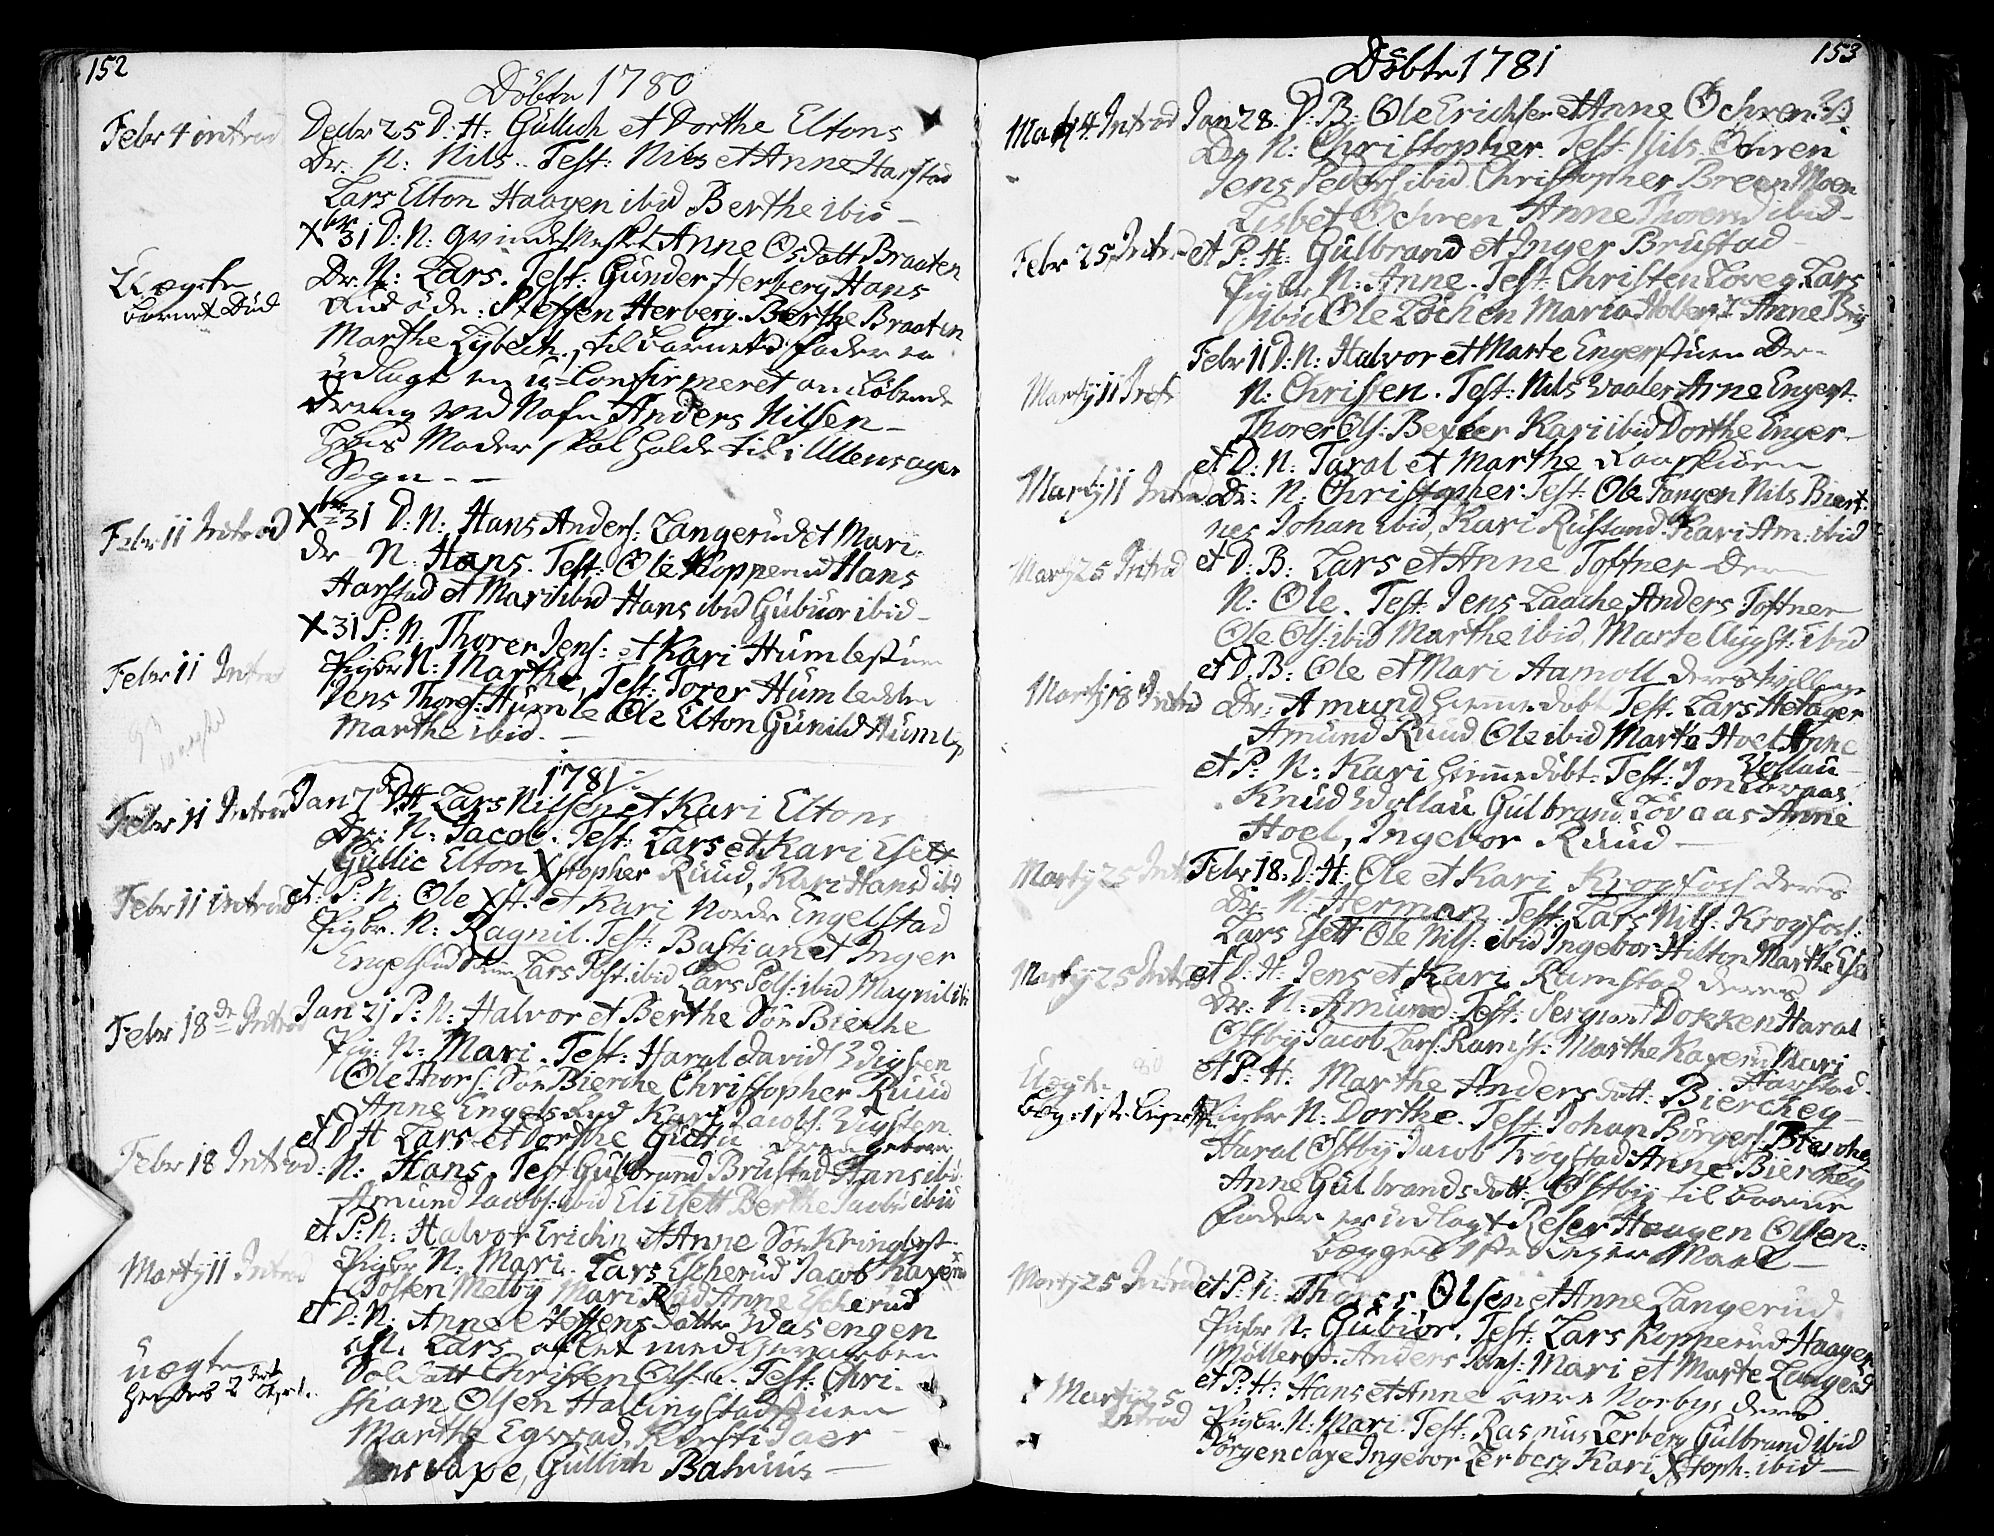 152
Döbte 1780
Febr 4 introd
Decbr 25 D. H: Gullich et Dorthe Eltons
Dr. N: Nils. Test: Nils et Anne Harstad
Lars Elton Haagen ibid Berthe ibid
Xbr 31 D: N: Anne Osdatt Braaten
Uægte
barnet Död
Dr. N: Lars. Test: Gunder Herberg Hans
Steffen Herberg. Berthe Braaten
Marthe Lybech, til barnets fader er
udlagt en u-Confirmeret omlöbende
dreng ved Nafn Anders Nilsen
Hans Moder skal holde til i Ullensager
Sogn
Febr 11 Introd
Xbr 31 D: N: Hans Anders: Langerud et Mari
dr N: Hans. Test: Ole Kopperud Hans
Harstad et Mari ibid Hans ibid Gubiör ibid
Febr 11 Introd
X 31 P: N: Thorer Jens: et Kari Humlestuen
Pigbr N: Marthe, Test: Torer Humledalen
Jens Thores: Humle Ole Elton Gunild Humle
Marthe ibid.
1781
Febr 11 Introd
Jan 7 D: H Lars Nilsen et Kari Eltons
Dr: N: Jacob. Test: Lars et Kari Esett
Gullic Elton Xstopher Ruud, Kari Hansd ibid
Febr 11 introd
et P: N: Ole Xst. et Kari Nordre Engelstad
Pigbr. N: Ragnil. Test: Bastian et Inger
Engelstad Lars ibid Lars Pols: ibid Magnil ibi
Febr 18de Introd
Jan 21 P: N: Halvor et Berthe Sön Bierche
Pig: N: Mari. Test: Haral Davids Vigsten
Ole Thors: Sön Bierche Christopher Ruud
Anne Engelstad Kari Jacobs: Vigsten
Febr 18 Introd
et D H Lars et Dorthe
N: Hans. Test Gulbrand Brustad Hans ibid
Amund Jacobs: ibid Eli Esett Berthe Jacobs ibid
Marty 11 Introd
et P: N: Halvor Erichs et Anne Sön Kringlest
Pigbr N: Mari. Lars Escherud Jacob Kaxrud
Tosten Melby Mari Anne Escherud
uægte
hendes 2det
et D: N: Anne Steffens datter Wasengen
N. Lars, aflet med
Soldatt Christen Olsen. Test: Chri-
stian Olsen Hallingstadstuen
Marthe Egsrad, Kersti Saer
Jens Saxe, Gullich Balnius
153
Döbte 1781
Marty 4 Introd
Jan 28. D: B: Ole Erichsen et Anne Ochren
Dr. N: Christopher. Test: Nils Ochren
Jens Peders ibid Christopher Breen Moen
Lisbet Ochren Anne Thoresd ibid
Febr 25 Introd
et P: H: Gulbrand et Inger Brustad
Pigbr N: Anne. Test: Christen Loveg Lars
ibid Ole Löchen Maria Holberg Anne
Marty 11 Introd
Febr 11 D: N: Halvor et Marte Engerstuen Dr.
N: Christen. Test: Nils Vaaler Arne Engerst.
Thorer Ols: Bexler Kari ibid Dorthe Enger
Marty 11 Introd
et D: N: Taral et Marthe
Dr: N: Christopher. Test: Ole Tangen Nils Biert-
nes Johan ibid, Kari Rustand. Kari Am: ibid
Marty 25 Introd
et D: B: Lars et Anne Toftner Der
N: Ole. Test: Jens Laache Anders Toftner
Ole Ols: ibid Marthe ibid, Marte Augst: ibid
Marty 18 Introd
et D: B: Ole et Mari Aamoll deres tvillinge
Dr: Amund hiemmedöbt Test. Lars Hotager
Amund Ruud Ole ibid Marte Hoel Anne
Vollau
et P: N: Kari hiemmedöbt. Test: Jon Lövaas
Knud Vollau Gulbrand Lövaas Anne
Hoel, Ingebor Ruud
Marty 25 Introd
Febr 18. D: H: Ole et Kari Krogfoss deres
Dr. N: Herman. Test: Lars Nils: Krogfoss:
Lars Esett Ole Nils: ibid Ingebor Hilton Marthe Esett
Marty 25 Introd
et D: H: Jens et Kari Ramstad deres
Dr. N: Amund. Test: Sergiant Dokken Haral
Ostby Jacob Lars: Ramst: Marthe Kaxrud Mari
Harstad
Uægte
et P: H: Marthe Anders datt: Bierchey
Pigbr N: Dorthe. Test: Johan Börgers: Bierchey
Haral Ostby Jacob Trögstad Anne Bierchey
Anne Gulbrands datt: Ostby til barne
fader er udlagt Reser Haagen Olsen:
begges 1ste Leyer Maal
Marty 25 Introd
et P: N: Thorer Olsen et Anne Langerud
Pigbr N. Gubiör. Test: Lars Kopperud Haagen
Möllerud. Anders Jons: Mari et Marte Langerud
Marty 25
Introd
et P: H: Hans et Anne övre Norby deres
Pigbr. N: Mari. Test: Rasmus Lerberg Gulbrand ibid
Jörgen Saxe Ingebor Lerberg Kari Xstoph. ibid